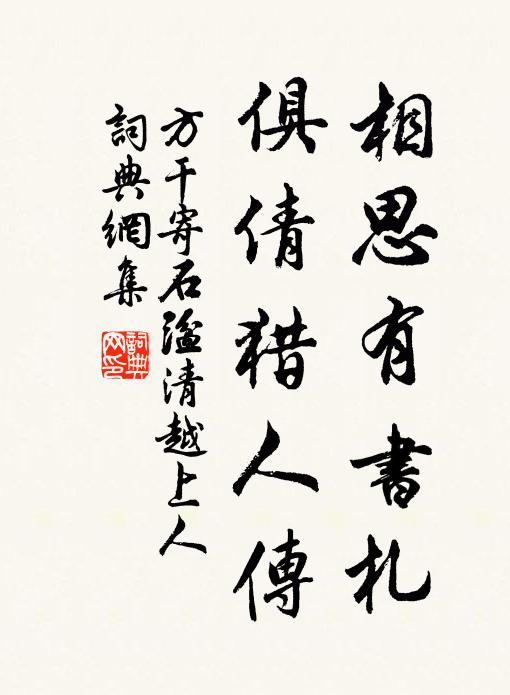 相思有書札
俱倩猎人傳
方干寄石溢清越上人
詞典網集
詞典網印